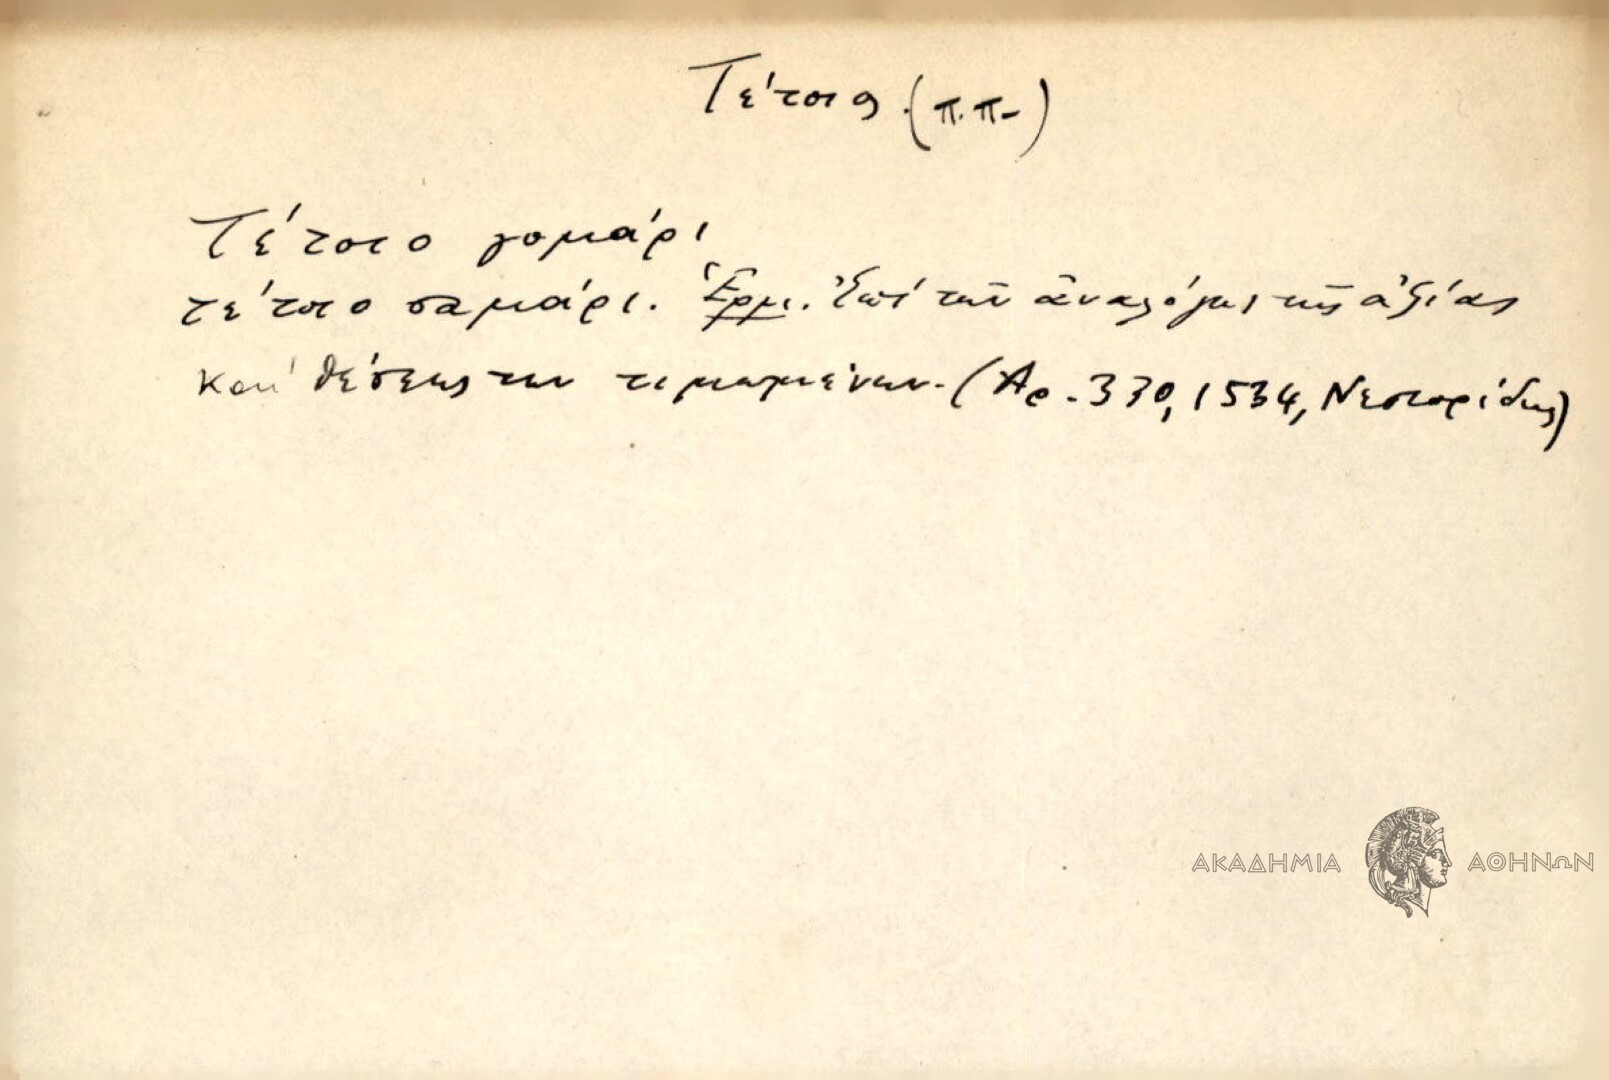 Τέτοιος (π.π-)
Τέτοιο γομάρι
τέτοιο σαμάρι. Ἑρμ. Ἐπί τῶν ἀναλόγως τῆς ἀξίας
καί θέσεως των τιμωμένων. (Αρ. 330, 1534, Νεστορίδης)
ΑΚΑΔΗΜΙΑ ΑΘΗΝΩΝ